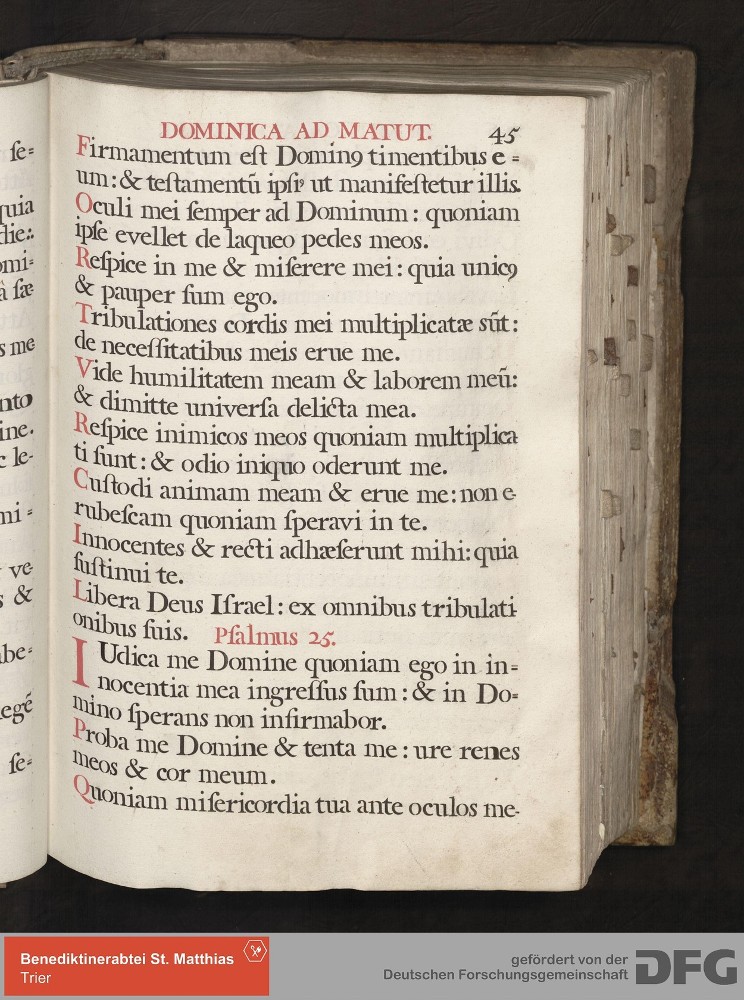 ſe=
quia
die:.
omi=
â ſæ
s me
nto
ine.
c le-
mi=
ve
s &
abe=
legẽ
ſe=
DOMINICA AD MATUT. 45
Firmamentum eſt Dominꝯ timentibus e=
um: & teſtamentũ ipſiꝰ ut manifeſtetur illis.
Oculi mei ſemper ad Dominum: quoniam
ipſe evellet de laqueo pedes meos.
Reſpice in me & miſerere mei: quia unicꝯ
& pauper ſum ego.
Tribulationes cordis mei multiplicatæ sũt:
de neceſſitatibus meis erue me.
Vide humilitatem meam & laborem meũ:
& dimitte univerſa delicta mea.
Reſpice inimicos meos quoniam multiplica
ti ſunt: & odio iniquo oderunt me.
Cuſtodi animam meam & erue me: non e-
rubeſcam quoniam ſperavi in te.
Innocentes & recti adhæſerunt mihi: quia
ſuſtinui te.
Libera Deus Iſrael: ex omnibus tribulati
onibus ſuis. Pſalmus 25.
IUdica me Domine quoniam ego in in=
nocentia mea ingreſſus ſum: & in Do=
mino ſperans non infirmabor.
Proba me Domine & tenta me: ure renes
meos & cor meum.
Quoniam miſericordia tua ante oculos me-
Benediktinerabtei St. Matthias
Trier
gefördert von der
Deutschen Forschungsgemeinschaft
DFG